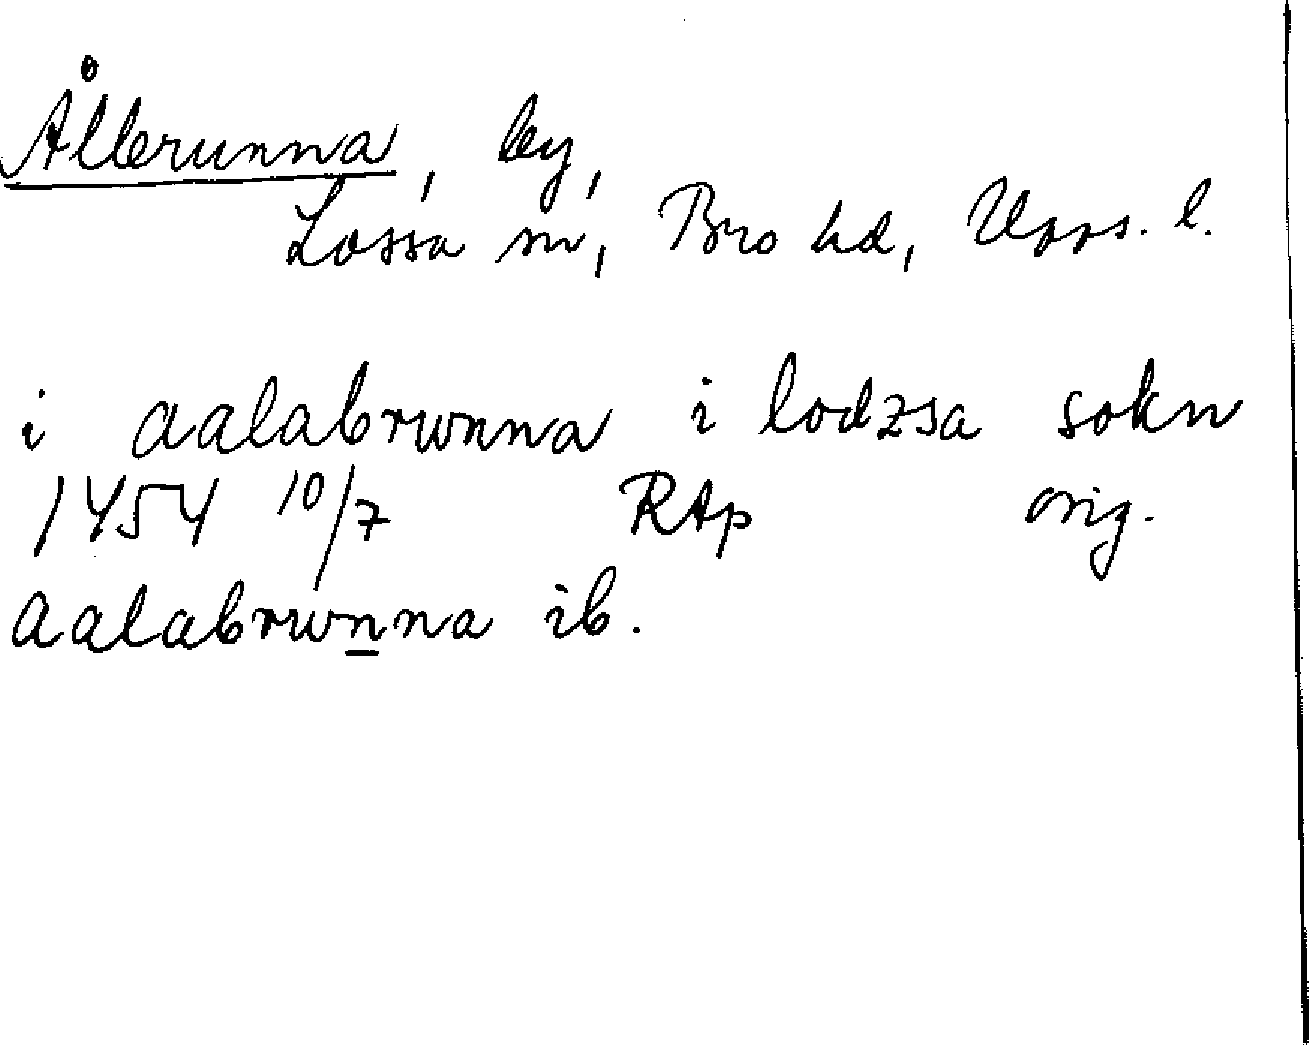 Ålbrunna, by,
Lossa sn, Bro hd, Upps. l.
i aalabrwnna i lodzsa sokn
1454 10/7 RAp orig.
aalabrwnna ib.